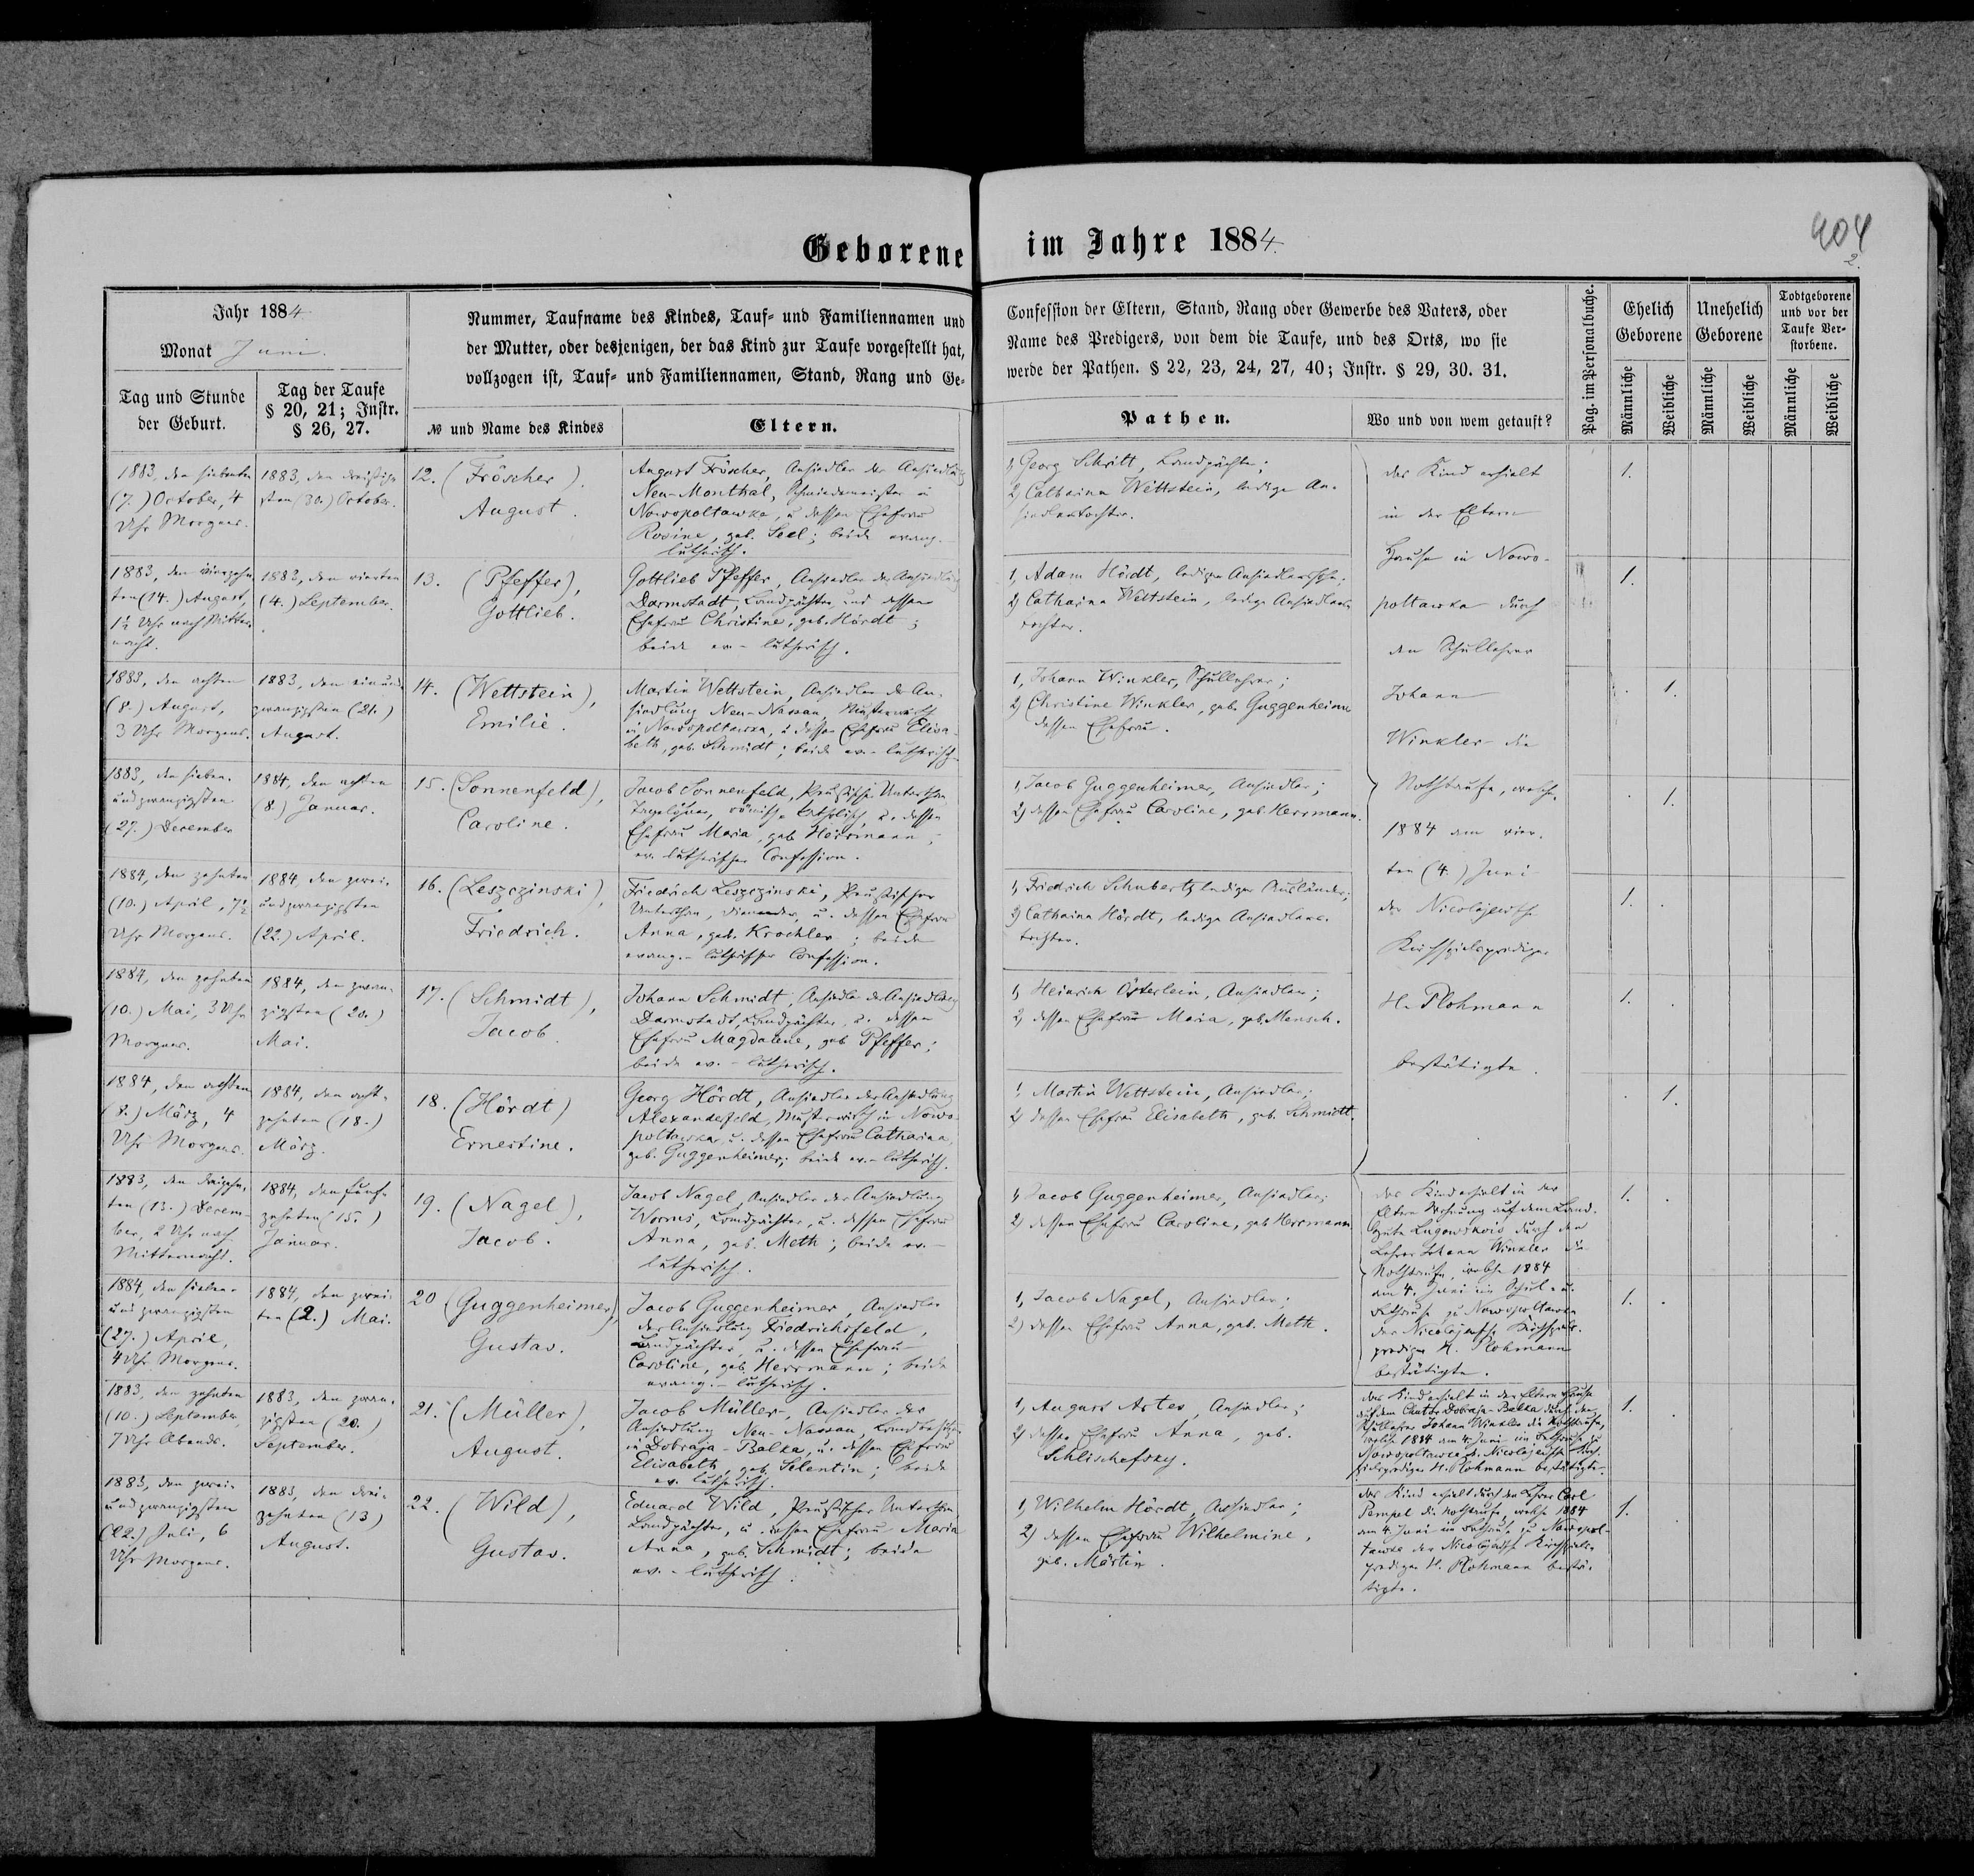 Geborene im Jahre 1884.
404
2.
Jahr 1884
Monat Juni.
Tag und Stunde
der Geburt.
Tag der Taufe
§ 20, 21; Instr.
§ 26, 27.
Nummer, Taufname des Kindes, Tauf- und Familiennamen und
der Mutter, oder desjenigen, der das Kind zur Taufe vorgestellt hat,
vollzogen ist, Tauf- und Familiennamen, Stand, Rang und Ge-
№ und Name des Kindes
Eltern.
Confession der Eltern, Stand, Rang oder Gewerbe des Vaters, oder
Name des Predigers, von dem die Taufe, und des Orts, wo sie
werde der Pathen. § 22, 23, 24, 27, 40; Instr. § 29, 30. 31.
Pathen.
Wo und von wem getauft?
Pag. im Personalbuche.
Ehelich
Geborene
Unehelich
Geborene
Todtgeborene
und vor der
Taufe Ver-
storbene.
Männliche
Weibliche
Männliche
Weibliche
Männliche
Weibliche
1883, den siebenten
(7.) October, 4
Uhr Morgens.
1883, den dreißig-
sten (30.) October.
12. (Fröscher).
August.
August Fröscher, Ansiedler der Ansiedlung
Neu-Monthal, Schmiedemeister in
Nowopoltawka, u. dessen Ehefrau
Rosine, geb. Seel; beide evang.-
lutherisch.
1, Georg Schritt, Landpächter;
2, Catharina Wettstein, ledige An-
siedlerstochter.
1.
1883, den vierzehn-
ten (14.) August,
1½ Uhr nach Mitter-
nacht.
1883, den vierten
(4.) September.
13. (Pfeffer),
Gottlieb.
Gottlieb Pfeffer, Ansiedler der Ansiedlung
Darmstadt, Landpächter, und dessen
Ehefrau Christine, geb. Hördt;
beide ev.-lutherisch.
1, Adam Hördt, lediger Ansiedlerssohn;
2, Catharina Wettstein, ledige Ansiedlers-
tochter.
1.
1883, den achten
(8.) August,
3 Uhr Morgens.
1883, den einund-
zwanzigsten (21.)
August.
14. (Wettstein),
Emilie.
Martin Wettstein, Ansiedler der An-
siedlung Neu-Nassau, Musterwirth
in Nowopoltawka, u. dessen Ehefrau Elisa-
beth, geb. Schmidt; beide ev.-lutherisch.
1, Johann Winkler, Schullehrer;
2, Christine Winkler, geb. Guggenheimer
dessen Ehefrau.
1.
1883, den sieben-
undzwanzigsten
(27.) December
1884, den achten
(8.) Januar.
15. (Sonnenfeld),
Caroline.
Jacob Sonnenfeld, Preußischer Unterthan
Tagelöhner, römisch-katholisch, u. dessen
Ehefrau Maria, geb. Herrmann,
ev. lutherischer Confession.
1, Jacob Guggenheimer, Ansiedler;
2, dessen Ehefrau Caroline, geb. Herrmann.
1.
1884, den zehnten
(10.) April, 7½
Uhr Morgens.
1884, den zwei-
undzwanzigsten
(22.) April.
16. (Leszczinski),
Friedrich.
Friedrich Leszczinski, Preußischer
Unterthan, u. dessen Ehefrau
Anna, geb. Krochler; beide
evang.-lutherischer Confession.
1, Friedrich Schubert, lediger Ausländer;
2, Catharina Hördt, ledige Ansiedlers-
tochter.
1.
1884, den zehnten
(10.) Mai, 3 Uhr
Morgens.
1884, den zwan-
zigsten (20.)
Mai.
17. (Schmidt),
Jacob.
Johann Schmidt, Ansiedler der Ansiedlung
Darmstadt, Landpächter, u. dessen
Ehefrau Magdalene, geb. Pfeffer;
beide ev.-lutherisch.
1, Heinrich Österlein, Ansiedler;
2, dessen Ehefrau Maria, geb. Mensch.
1.
1884, den achten
(8.) März, 4
Uhr Morgens.
1884, den acht-
zehnten (18.)
März.
18. (Hördt)
Ernestine.
Georg Hördt, Ansiedler der Ansiedlung
Alexanderfeld, Musterwirth in Nowo-
poltawka, u. dessen Ehefrau Catharina,
geb. Guggenheimer; beide ev.-lutherisch.
1, Martin Wettstein, Ansiedler;
2, dessen Ehefrau Elisabeth, geb. Schmidt.
1.
das Kind erhielt
in der Eltern
Hause in Nowo-
poltawka durch
den Schullehrer
Johann
Winkler die
Nothtaufe, welche
1884 am vier-
ten (4.) Juni
der Nicolajewsche
Kirchspielsprediger
H. Plohmann
bestätigte.
1883, den dreizehn-
ten (13.) Decem-
ber, 2 Uhr nach
Mitternacht.
1884, den fünf-
zehnten (15.)
Januar.
19. (Nagel),
Jacob.
Jacob Nagel, Ansiedler der Ansiedlung
Worms, Landpächter, u. dessen Ehefrau
Anna, geb. Meth; beide ev.-
lutherisch.
1, Jacob Guggenheimer, Ansiedler;
2, dessen Ehefrau Caroline, geb. Herrmann
1.
1884, den sieben-
und zwanzigsten
(27.) April,
4 Uhr Morgens.
1884, den zwei-
ten (2.) Mai.
20 (Guggenheimer),
Gustav.
Jacob Guggenheimer Ansiedler
der Ansiedlung Friedrichsfeld,
Landpächter, u. dessen Ehefrau
Caroline, geb. Herrmann; beide
evang.-lutherisch.
1, Jacob Nagel, Ansiedler;
2, dessen Ehefrau Anna, geb. Meth.
1.
das Kind erhielt in der
Eltern Wohnung auf dem Land-
gute Lugowskois durch den
Lehrer Johann Winkler die
Nothtaufe, welche 1884
am 4. Juni im Schul- u.
Bethause zu Nowopoltawka
der Nicolajewsche Kirchspiels-
prediger H. Plohmann
bestätigte.
1883, den zehnten
(10.) September,
7 Uhr Abends.
1883, den zwan-
zigsten (20.)
September.
21. (Müller),
August.
Jacob Müller, Ansiedler der
Ansiedlung Neu-Nassau, Landbesitzer
in Dobraja-Balka, u. dessen Ehefrau
Elisabeth, geb. Selentin; beide
ev. lutherisch.
1, August Artes, Ansiedler;
2, dessen Ehefrau Anna, geb.
Schlischefsky.
das Kind erhielt in der Eltern Hause
auf dem Chutor Dobraja-Balka durch den
Schullehrer Johann Winkler die Nothtaufe,
welche 1884 am 4. Juni im Bethause zu
Nowopoltawka der Nicolajewsche Kirch-
spielsprediger H. Plohmann bestätigte.
1.
1883, den zwei-
und zwanzigsten
(22.) Juli, 6
Uhr Morgens.
1883, den drei-
zehnten (13)
August.
22. (Wild),
Gustav.
Eduard Wild, Preußischer Unterthan
Landpächter, u. dessen Ehefrau Maria
Anna, geb. Schmidt; beide
ev.-lutherisch.
1, Wilhelm Hördt, Ansiedler;
2, dessen Ehefrau Wilhelmine,
geb. Märtin.
das Kind erhielt durch den Lehrer Carl
Pempel die Nothtaufe, welche 1884
am 4. Juni im Bethause zu Nowopol-
tawka der Nicolajewsche Kirchspiels-
prediger H. Plohmann bestä-
tigte.
1.